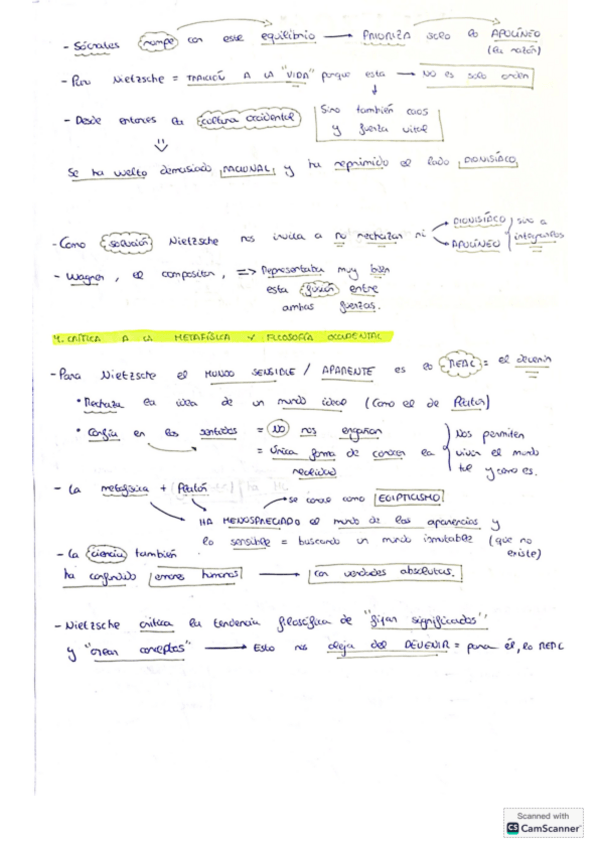 - Sócrates rompe con este equilibrio → PRIORIZA solo lo APOLÍNEO
(la razón)
- Para Nietzsche = TRAICIÓN A LA "VIDA" porque esta → NO es solo orden
↓
Sino también caos
y fuerza vital
- Desde entonces la cultura occidental
⇓
Se ha vuelto demasiado RACIONAL, y ha reprimido el lado DIONISÍACO
- Como solución Nietzsche nos invita a no rechazar ni DIONISÍACO
APOLÍNEO
sino a
integrarlos
- Wagner, el compositor, => Representaba muy bien
esta fusión entre
ambas fuerzas.
4. CRÍTICA A LA METAFÍSICA Y FILOSOFÍA OCCIDENTAL
- Para Nietzsche el MUNDO SENSIBLE / APARENTE es lo REAL = el devenir
• Rechaza la idea de un mundo ideal (Como el de Platón)
• Confía en los sentidos = NO nos engañan
= única forma de conocer la
realidad
Nos permiten
vivir el mundo
tal y como es.
- La metafísica + Platón
→ se conoce como EGIPTICISMO
HA MENOSPRECIADO el mundo de las apariencias y
lo sensible = buscando un mundo inmutable (que no
existe)
- La ciencia también
ha confundido errores humanos → con verdades absolutas.
- Nietzsche critica la tendencia filosófica de "fijar significados"
y "crear conceptos" → Esto nos aleja del DEVENIR = para él, lo REAL
Scanned with
CS CamScanner